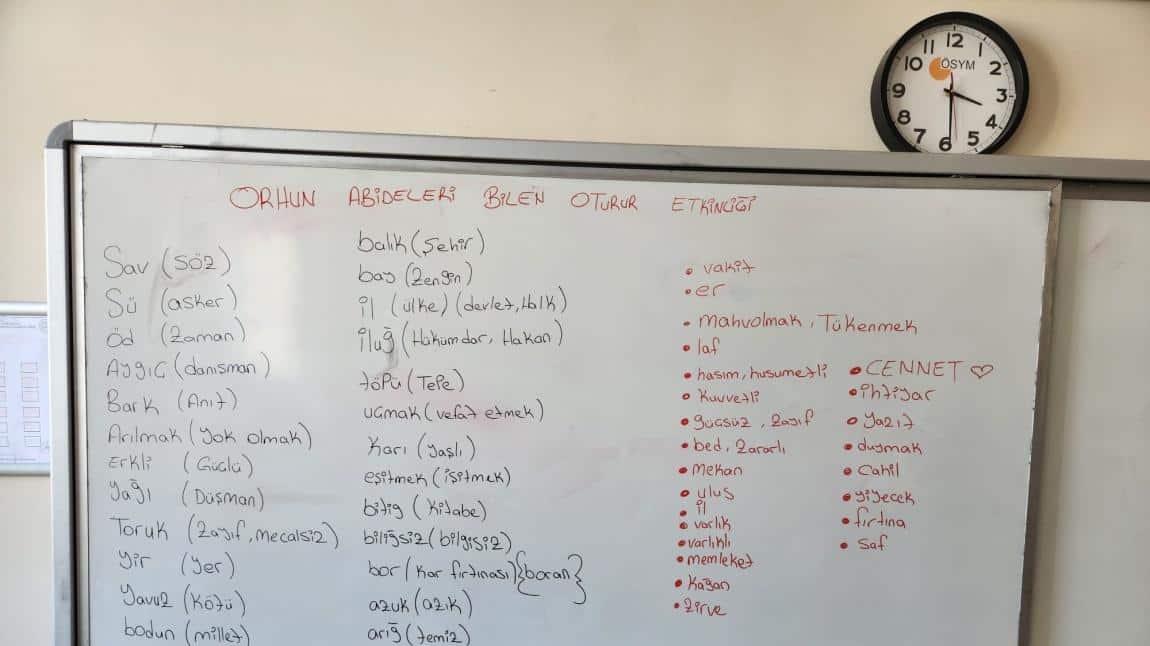 12
11 1
10 ÖSYM 2
9 3
8 4
7 6 5
ORHUN ABİDELERİ BİLEN OTURUR ETKİNLİĞİ
Sav (söz)
Sü (asker)
Öd (Zaman)
Aygıc (danısman)
Bark (Anıt)
Arılmak (yok olmak)
Erkli (Güclü)
Yağı (Düşman)
Toruk (Zayıf, mecalsiz)
yir (yer)
Yavuz (Kötü)
bodun (millet)
balık (Şehir)
bay (Zengin)
il (ülke) (devlet, Halk)
iluğ (Hükümdar, Hakan)
töpü (Tepe)
ucmak (vefat etmek)
Karı (yaşlı)
eşitmek (işitmek)
bitig (Kitabe)
biliğsiz (bilgisiz)
bor (Kar fırtınası) {boran}
azuk (azık)
arığ (temiz)
• vakit
• er
• mahvolmak, Tükenmek
• laf
• hasım, husumetli
• Kuvvetli
• gücsüz, zayıf
• bed, zararlı
• mekan
• ulus
• il
• varlık
• varlıklı
• memleket
• Kağan
• zirve
• CENNET ♡
• ihtiyar
• yazıt
• duymak
• Cahil
• yiyecek
• fırtına
• saf